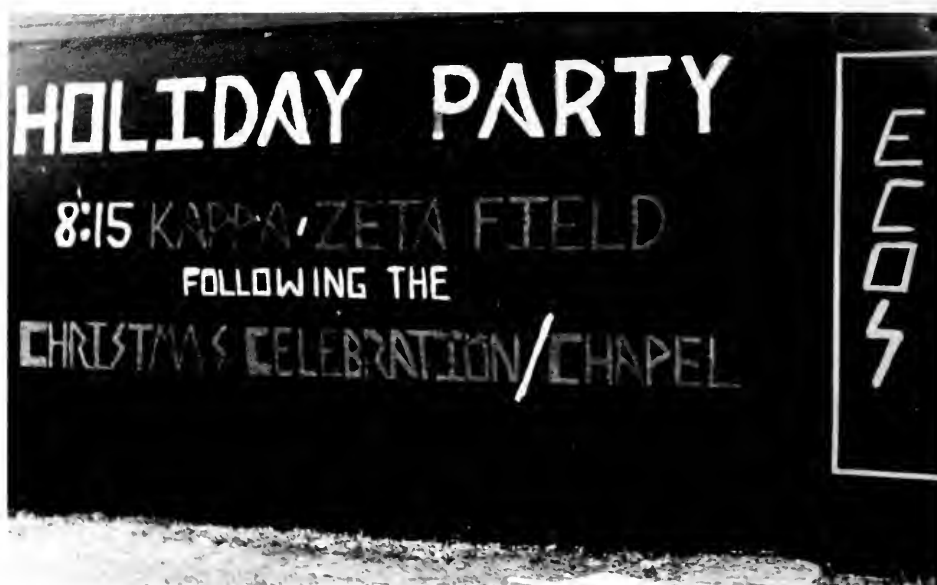 HOLIDAY PARTY
8:15 KAPPA, ZETA FIELD
FOLLOWING THE
CHRISTMAS CELEBRATION/CHAPEL
ECOS